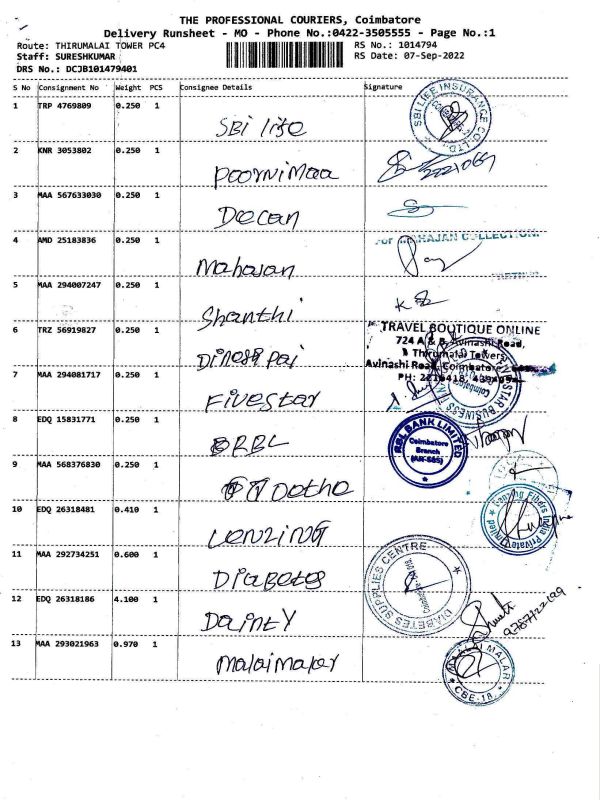 THE PROFESSIONAL COURIERS, Coimbatore
Delivery Runsheet - MO - Phone No.:0422-3505555 - Page No.:1
Route: THIRUMALAI TOWER PC4 RS No.: 1014794
Staff: SURESHKUMAR RS Date: 07-Sep-2022
DRS No.: DCJB101479401
S No Consignment No Weight PCS Consignee Details Signature
1 TRP 4769809 0.250 1
SBi life
SBI LIFE INSURANCE CO. LTD.
2 KNR 3053802 0.250 1
poornimaa
3 MAA 567633030 0.250 1
Deccan
4 AMD 25183836 0.250 1
For MAHAJAN COLLECTION
Mahajan
5 MAA 294007247 0.250 1
Shanthi
6 TRZ 56919827 0.250 1
TRAVEL BOUTIQUE ONLINE
724 A & B, Avinashi Road,
Thirumalai Towers
Avinashi Road, Coimbatore
Dinesh pai
7 MAA 294081717 0.250 1
FIVESTAR BUSINESS
Fivestar
8 EDQ 15831771 0.250 1
RBL
RBL BANK LIMITED
Coimbatore
Branch
9 MAA 568376830 0.250 1
10 EDQ 26318481 0.410 1
Lenzing Fibers India Private Limited
LENZING
11 MAA 292734251 0.600 1
Diabetes
DIABETES SUPPLIES CENTRE
12 EDQ 26318186 4.100 1
Dainty
13 MAA 293021963 0.970 1
Malaimalar
MALAI MALAR
CBE-18